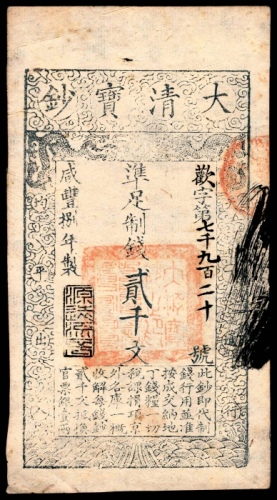 大清寶鈔
歡字第七千九百二十號
準足制錢貳千文
咸豐捌年製
均平出
此鈔即代制
錢行用並准
按成交納地
丁錢糧一切
稅課捐項京
外各庫一概
收解每錢鈔
貳千文抵換
官票銀壹兩
源遠流長